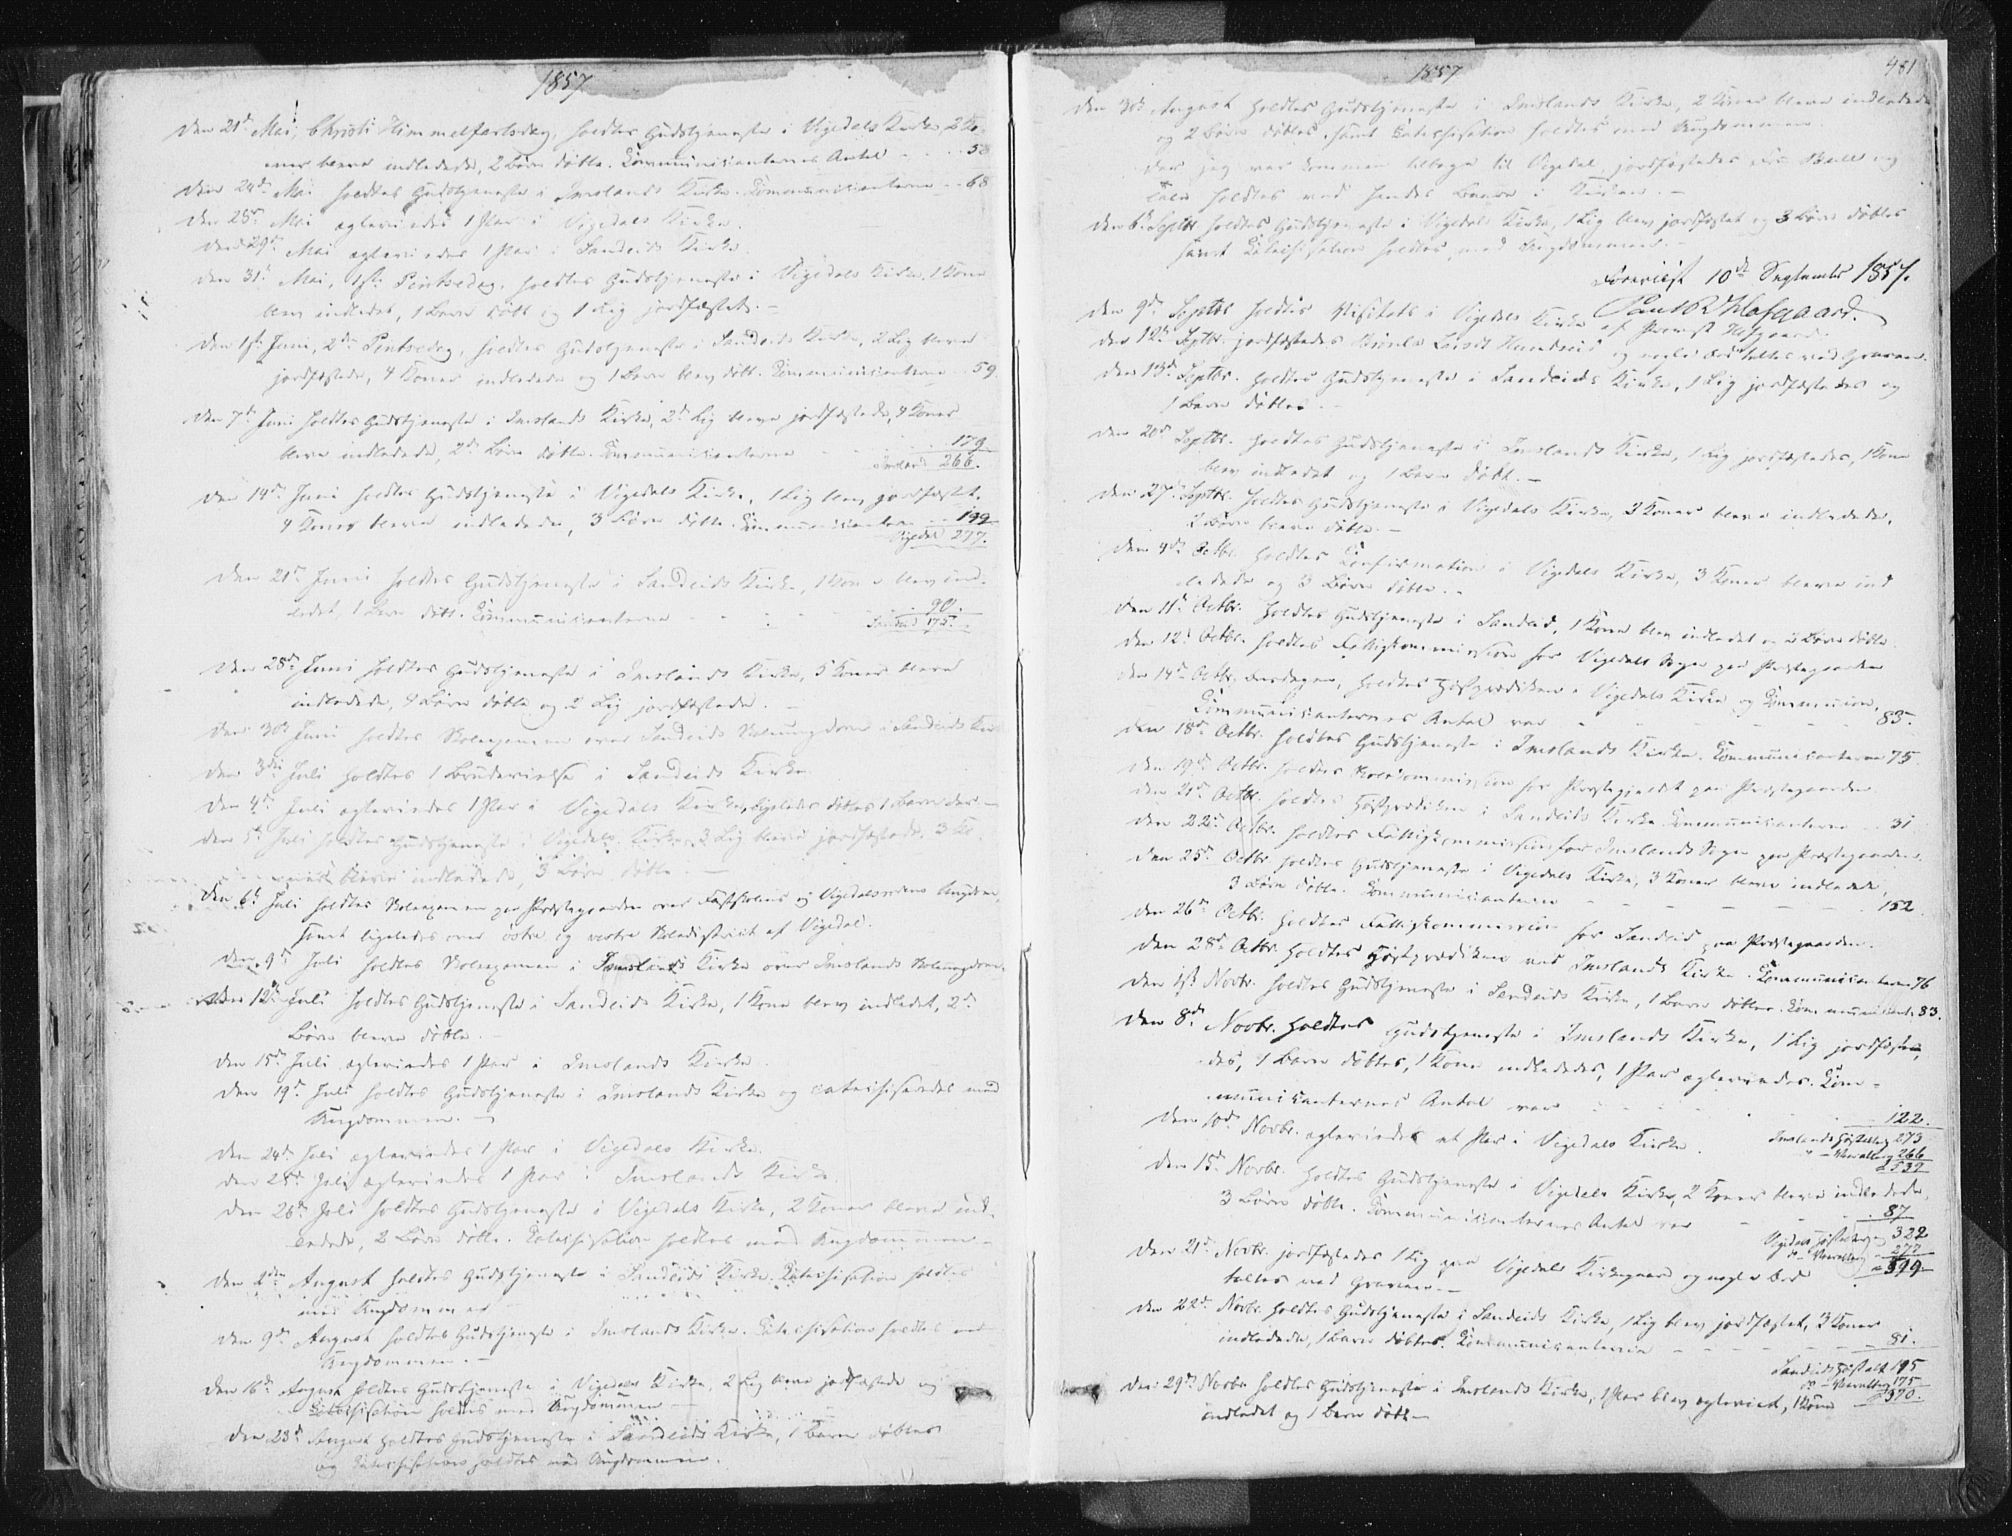 1857
Den 21de Mai, Christi Himmelfartsdag, holdtes Gudstjeneste i Vigedals Kirke, 2 Ko-
ner bleve indledede, 2 Børn døbte. Communicanternes Antal - - 58
Den 24de Mai holdtes Gudstjeneste i Imslands Kirke. Communicanterne - - 68
Den 28de Mai egteviedes 1 Par i Vigedals Kirke.
Den 29de Mai egteviedes 1 Par i Sandeids Kirke.
Den 31te Mai, 1ste Pintsedag, holdtes Gudstjeneste i Vigedals Kirke, 1 Kone
blev indledet, 1 Barn døbt og 1 Lig jordfæstet. -
Den 1ste Juni, 2den Pintsedag, holdtes Gudstjeneste i Sandeids Kirke, 2 Lig bleve
jordfæstede, 4 Koner indledede og 1 Barn blev døbt. Communicanterne - 59.
Den 7de Juni holdtes Gudstjeneste i Imslands Kirke, 2de Lig bleve jordfæstede, 4 Koner
bleve indledede, 2de Børn døbte. Communicanterne - - 179
Imsland 266.
Den 14de Juni holdtes Gudstjeneste i Vigedals Kirke, 1 Lig blev jordfæstet,
4 Koner bleve indledede, 3 Børn døbte. Communicanterne - - 199
Vigedal 277.
Den 21de Juni holdtes Gudstjeneste i Sandeids Kirke, 1 Kone blev ind-
ledet, 1 Barn døbt. Communicanterne - - - 90.
Sandeid 175.
Den 28de Juni holdtes Gudstjeneste i Imslands Kirke, 5 Koner bleve
indledede, 4 Børn døbte og 2 Lig jordfæstede. -
Den 30te Juni holdtes Skoleexamen over Sandeids Skoleungdom i Sandeids Kirke
Den 3die Juli holdtes 1 Brudevielse i Sandeids Kirke.
Den 4de Juli egteviedes 1 Par i Vigedals Kirke, ligeledes døbtes 1 Barn der -
Den 5te Juli holdtes Gudstjeneste i Vigedals Kirke, 3 Lig bleve jordfæstede, 3 Ko-
ner bleve indledede, 3 Børn døbte. -
Den 6te Juli holdtes Skoleexamen paa Præstegaarden over Fastskolens og Vigedalsørens Ungdom,
samt ligeledes over østre og vestre Skoledistrict af Vigedal.
Den 9de Juli holdtes Skoleexamen i Imslands Kirke over Imslands Skoleungdom.
Den 12te Juli holdtes Gudstjeneste i Sandeids Kirke, 1 Kone blev indledet, 2de
Børn bleve døbte. -
Den 15de Juli egteviedes 1 Par i Imslands Kirke.
Den 19de Juli holdtes Gudstjeneste i Imslands Kirke og catechiseredes med
Ungdommen. -
Den 24de Juli egteviedes 1 Par i Vigedals Kirke.
Den 25de Juli egteviedes 1 Par i Imslands Kirke.
Den 26de Juli holdtes Gudstjeneste i Vigedals Kirke, 2 Koner bleve ind-
ledede, 2 Børn døbte. Catechisation holdtes med Ungdommen -
Den 2den August holdtes Gudstjeneste i Sandeids Kirke. Catechisation holdtes
med Ungdommen
Den 9de August holdtes Gudstjeneste i Imslands Kirke. Catechisation holdtes med
Ungdommen. -
Den 16de August holdtes Gudstjeneste i Vigedals Kirke, 2 Lig bleve jordfæstede og
Catechisation holdtes med Ungdommen -
Den 23de August holdtes Gudstjeneste i Sandeids Kirke, 1 Barn døbtes
og Catechisation holdtes med Ungdommen.
1857
481
Den 30te August holdtes Gudstjeneste i Imslands Kirke, 2 Koner bleve indledede
og 2 Børn døbtes, samt Catechisation holdtes med Ungdommen.
Der jeg var kommen tilbage til Vigedal, jordfæstedes og
Tale holdtes ved hendes Baare i Kirken. -
Den 6te Septbr holdtes Gudstjeneste i Vigedals Kirke, 1 Lig blev jordfæstet og 3 Børn døbtes
samt Catechisation holdtes med Ungdommen. -
Foreviist 10de September 1857.
Hofgaard.
Den 9de Septbr holdtes Visitats i Vigedals Kirke af Provst Hofgaard.
Den 12te Septbr. jordfæstedes og nogle Ord taltes ved Graven.
Den 13de Septbr. holdtes Gudstjeneste i Sandeids Kirke, 1 Lig jordfæstedes og
1 Barn døbtes. -
Den 20de Septbr. holdtes Gudstjeneste i Imslands Kirke, 1 Lig jordfæstedes, 1 Kone
blev indledet og 1 Barn døbt. -
Den 27de Septbr. holdtes Gudstjeneste i Vigedals Kirke, 2 Koner bleve indledede,
2 Børn bleve døbte. -
Den 4de Octbr. holdtes Confirmation i Vigedals Kirke, 3 Koner bleve ind
ledede og 3 Børn døbte. -
Den 11te Octbr. holdtes Gudstjeneste i Sandeid, 1 Kone blev indledet og 2 Børn døbte.
Den 12te Octbr. holdtes Fattigkommission for Vigedals Sogn paa Præstegaarden
Den 14de Octbr., Onsdagen, holdtes Høstprædiken i Vigedals Kirke og Communion,
Communicanternes Antal var - - - 85.
Den 18de Octbr. holdtes Gudstjeneste i Imslands Kirke. Communicanterne 75.
Den 19de Octbr. holdtes Skolekommission for Præstegjeldet paa Præstegaarden.
Den 21de Octbr. holdtes Høstprædiken i Sandeids Kirke. Communicanterne - 31
Den 22de Octbr. holdtes Fattigkommission for Imslands Sogn paa Præstegaarden.
Den 25de Octbr. holdtes Gudstjeneste i Vigedals Kirke, 3 Koner bleve indledede,
3 Børn døbte. Communicanterne - - - 152.
Den 26de Octbr. holdtes Fattigkommission for Sandeid paa Præstegaarden.
Den 28de Octbr. holdtes Høstprædiken ved Imslands Kirke. Communicanterne 76
Den 1ste Novbr. holdtes Gudstjeneste i Sandeids Kirke, 1 Barn døbtes. Communicant. 83.
Den 8de Novbr. holdtes Gudstjeneste i Imslands Kirke, 1 Lig jordfæste-
des, 1 Barn døbtes, 1 Kone indledes, 1 Par egteviedes. Com-
municanternes Antal var - - - 122.
Den 10de Novbr. egteviedes et Par i Vigedals Kirke. Imslands Høstaltg 273
" - Vaaraltg 266
= 539
Den 15de Novbr. holdtes Gudstjeneste i Vigedals Kirke, 2 Koner bleve indledede,
3 Børn døbte. Communicanternes Antal var - - 87
Vigedals Høstaltg 322
do - Vaaraltg 277
= 599
Den 21de Novbr. jordfæstedes 1 Lig paa Vigedals Kirkegaard og nogle Ord
taltes ved Graven. -
Den 22de Novbr. holdtes Gudstjeneste i Sandeids Kirke, 1 Lig blev jordfæstet, 3 Koner
indledede, 1 Barn døbtes. Communicanterne - - - 81.
Sandeids Høstalt 195
do - Vaaraltg 175
= 370.
Den 29de Novbr. holdtes Gudstjeneste i Imslands Kirke, 1 Par blev egteviet, 1 Kone
indledet og 1 Barn døbt -